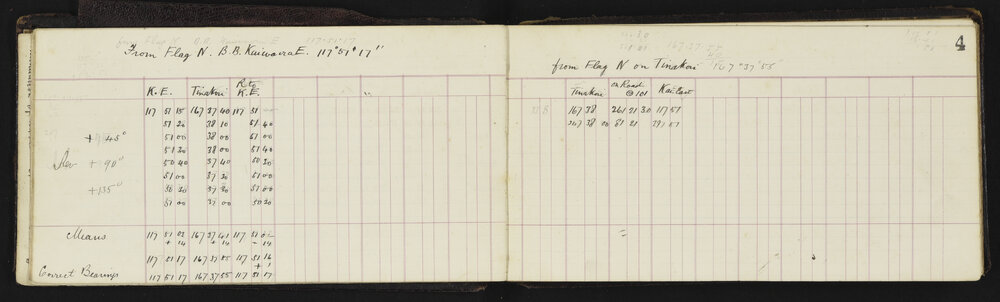 From Flag N. B.B. Kaiwarra E. 117° 51' 17"
K.E. Tinakori R to K.E.
117 51 15 167 37 40 117 51
51 20 38 10 51 40
+ 45" 51 00 38 00 51 00
51 30 38 00 51 40
Rev + 90" 50 40 37 40 50 30
51 00 37 30 51 00
+135" 50 30 37 30 51 00
51 00 37 00 50 30
Means 117 51 03 167 37 41 117 51 02
+ 14 + 14 - 14
117 51 17 167 37 55 117 51 16
+ 1
Correct Bearings 117 51 17 167 37 55 117 51 17
4
from Flag N on Tinakori 167° 37' 55
Tinakori on Road @ 101 Kai East
167 38 261 21 30 117 51
347 38 00 81 21 297 51